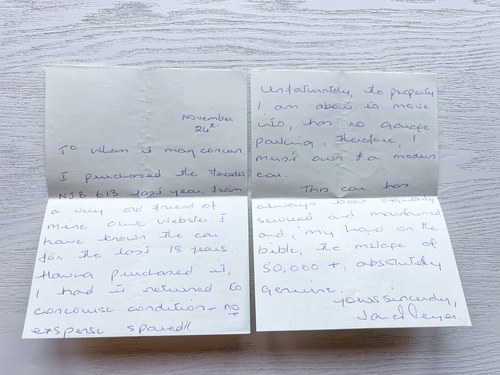 November
24th.
To whom it may concern.
I purchased the Mercedes
NJB 61B last year, from
a very old friend of
mine Clive Webster. I
have known the car
for the last 18 years.
Having purchased it,
I had it returned to
concourse condition - no
expense spared!!
Unfortunately, the property
I am about to move
into, has no garage
parking, therefore, I
must own to a modern
car.
This car has
always been regularly
serviced and maintained
and, my hand on the
bible, the mileage of
50,000 +, absolutely
genuine.
Yours sincerely,